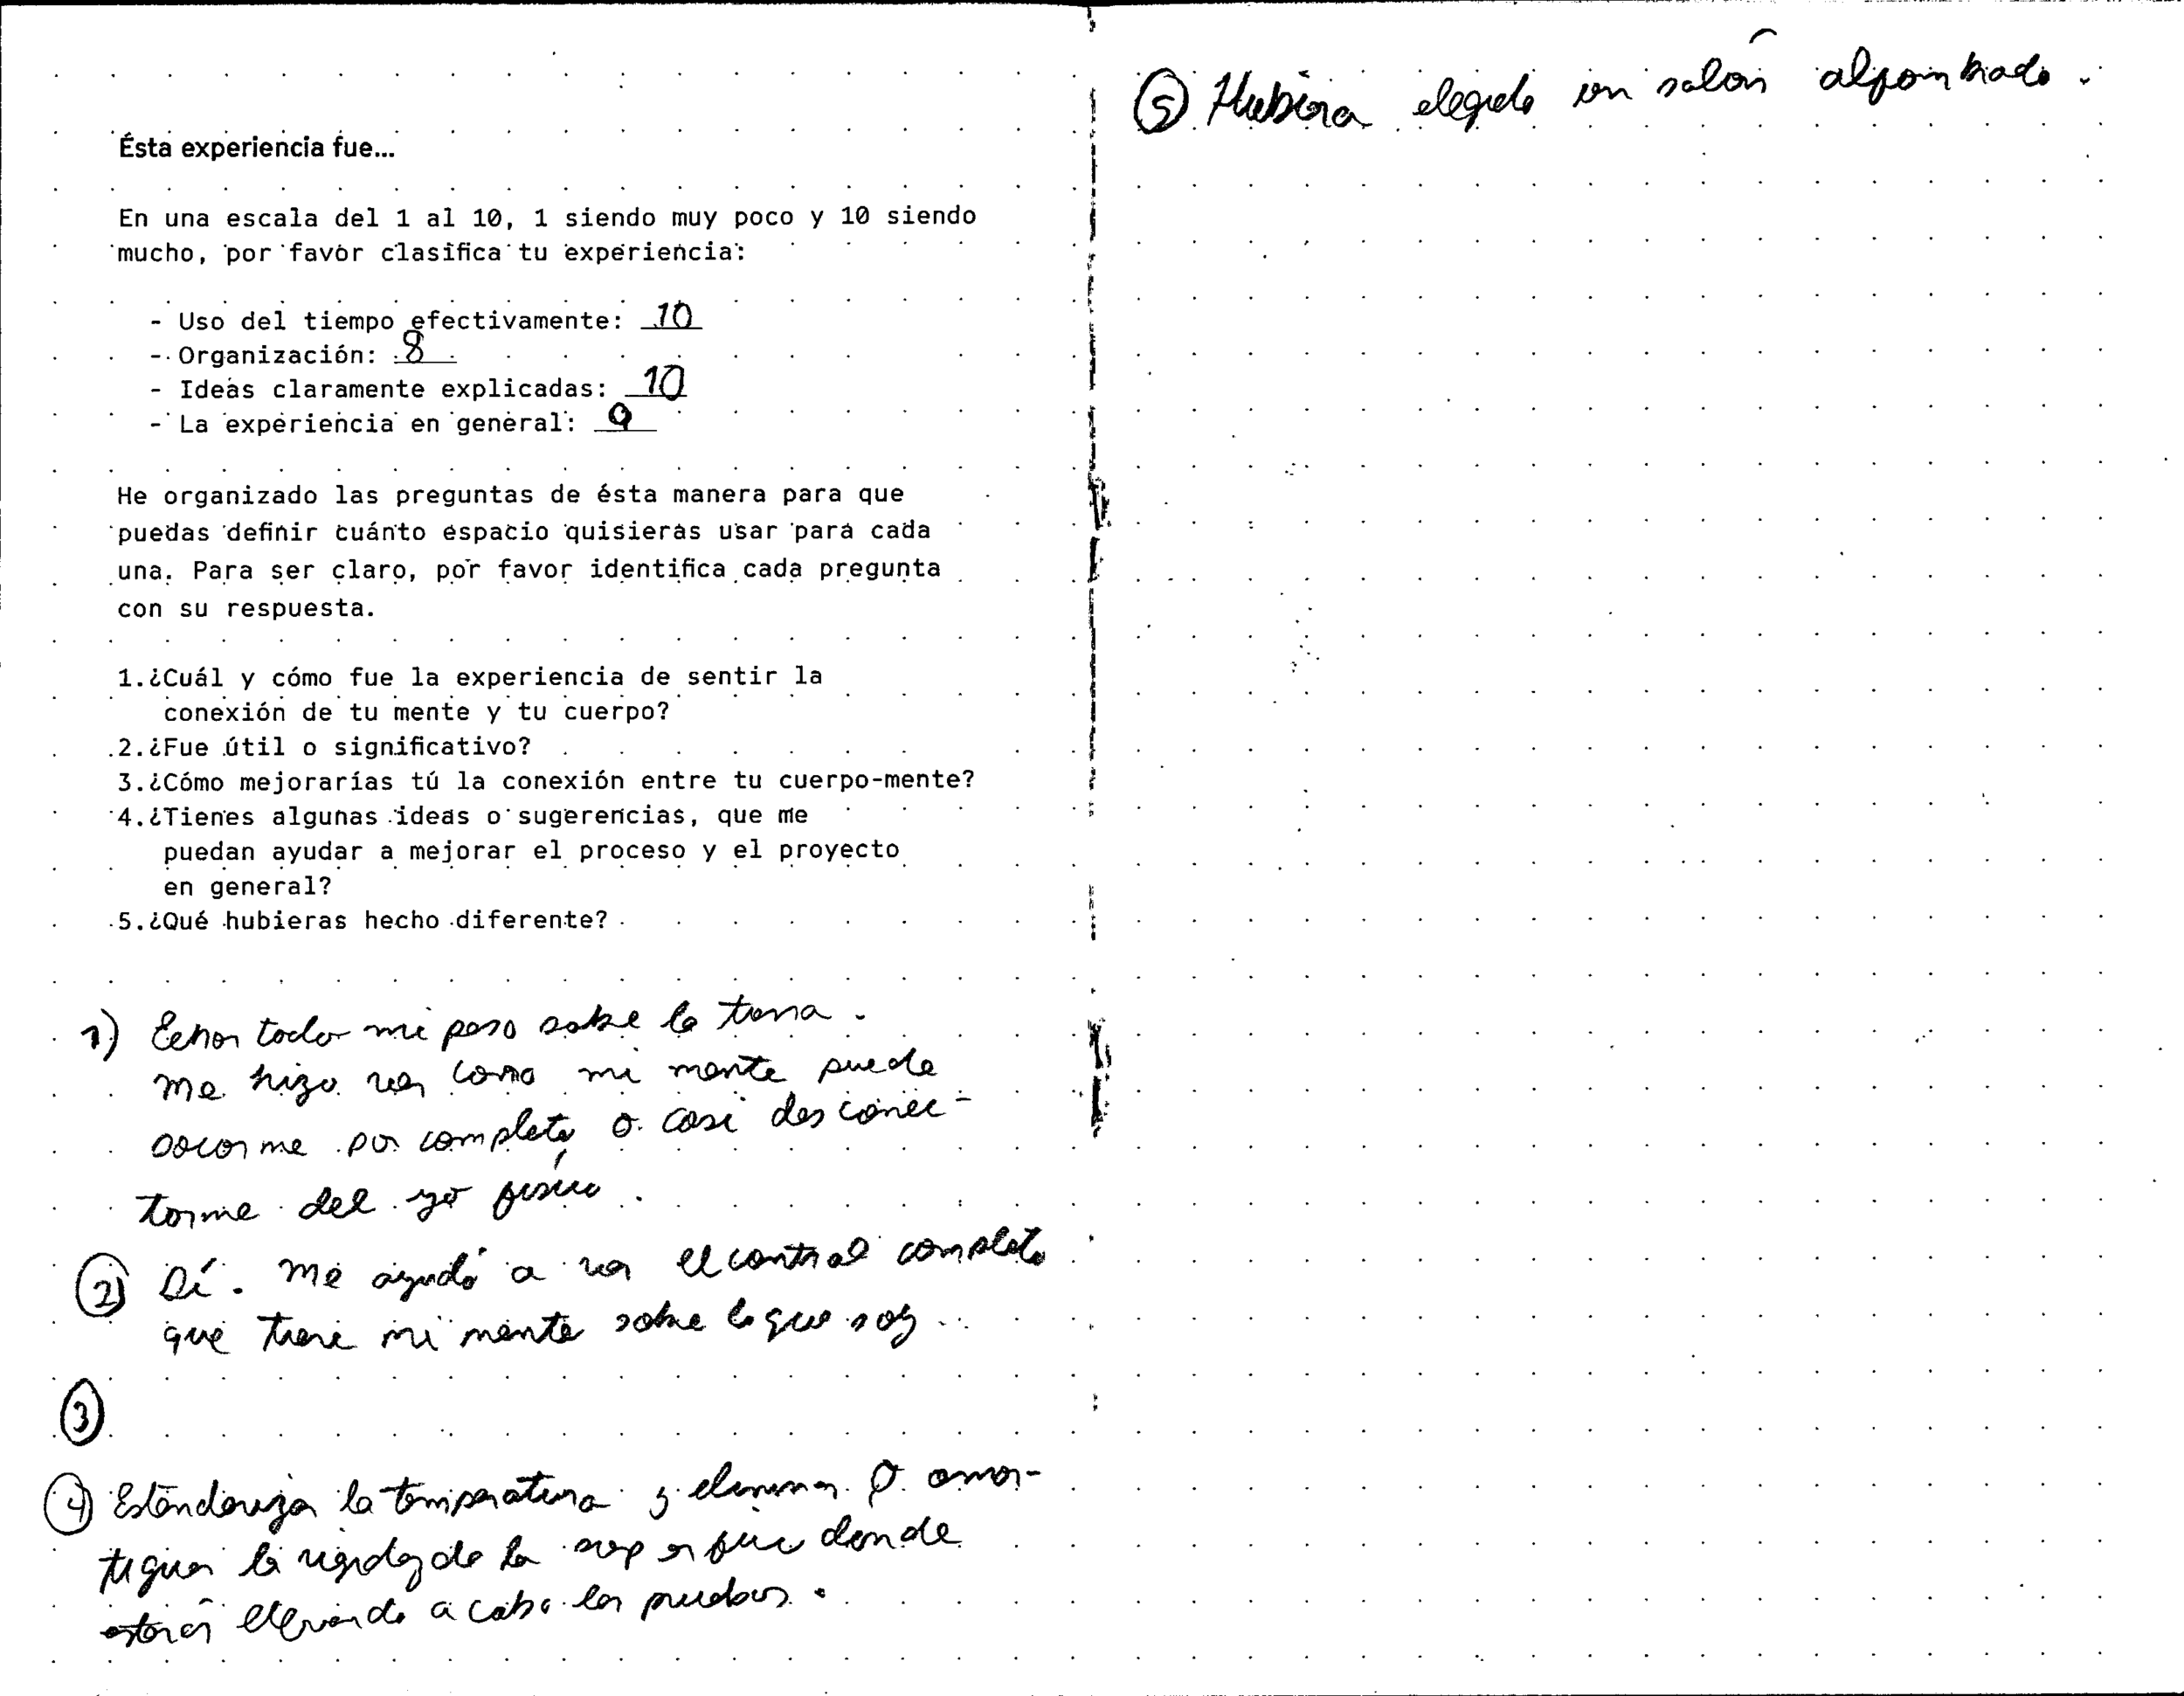 Ésta experiencia fue...
En una escala del 1 al 10, 1 siendo muy poco y 10 siendo
mucho, por favor clasifica tu experiencia:
- Uso del tiempo efectivamente: 10
- Organización: 8
- Ideas claramente explicadas: 10
- La experiencia en general: 9
He organizado las preguntas de ésta manera para que
puedas definir cuánto espacio quisieras usar para cada
una. Para ser claro, por favor identifica cada pregunta
con su respuesta.
1.¿Cuál y cómo fue la experiencia de sentir la
conexión de tu mente y tu cuerpo?
2.¿Fue útil o significativo?
3.¿Cómo mejorarías tú la conexión entre tu cuerpo-mente?
4.¿Tienes algunas ideas o sugerencias, que me
puedan ayudar a mejorar el proceso y el proyecto
en general?
5.¿Qué hubieras hecho diferente?
1) Echar todo mi peso sobre la tierra.
Me hizo ver como mi mente puede
sacarme por completo, o casi desconec-
tarme del yo físico.
2) Sí. Me ayudó a ver el control completo
que tiene mi mente sobre lo que soy..
3
4) Estandarizar la temperatura y eliminar o amor-
tiguar la rigidez de la superficie donde
estarás llevando a cabo las pruebas.
5 Hubiera elegido un salón alfombrado.